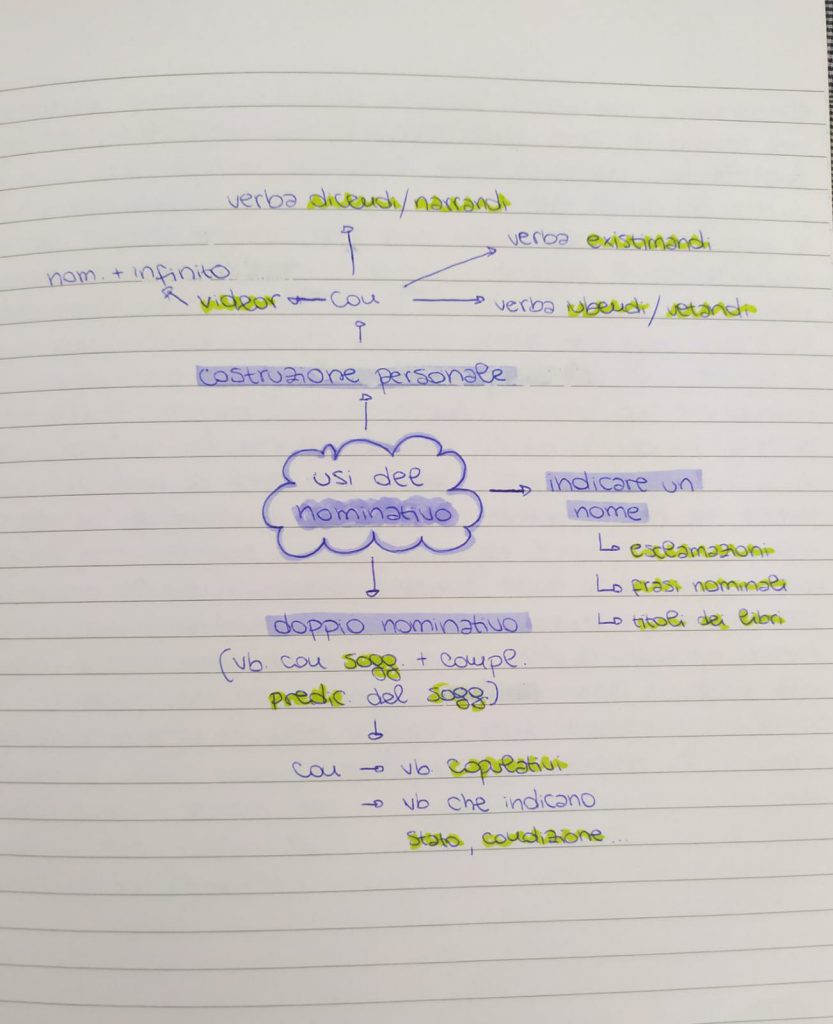 verba dicendi/narrandi
verba existimandi
nom. + infinito
videor ← con
verba iubendi/vetandi
costruzione personale
usi del
nominativo
indicare un
nome
↳ esclamazioni
↳ frasi nominali
↳ titoli dei libri
doppio nominativo
(vb. con sogg. + compl.
predic. del sogg.)
con → vb. copulativi
→ vb che indicano
stato, condizione...